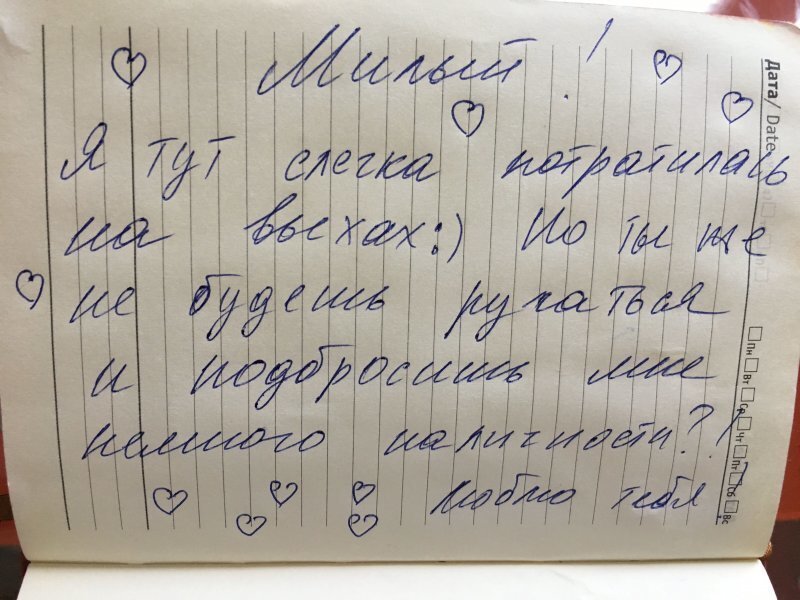 Милый!
Я тут слегка потратилась
на выхах:) Но ты же
не будешь рухаться
и подбросишь мне
немного наличности??
Люблю тебя
Дата/ Date
Пн Вт Ср Чт Пт Сб Вс